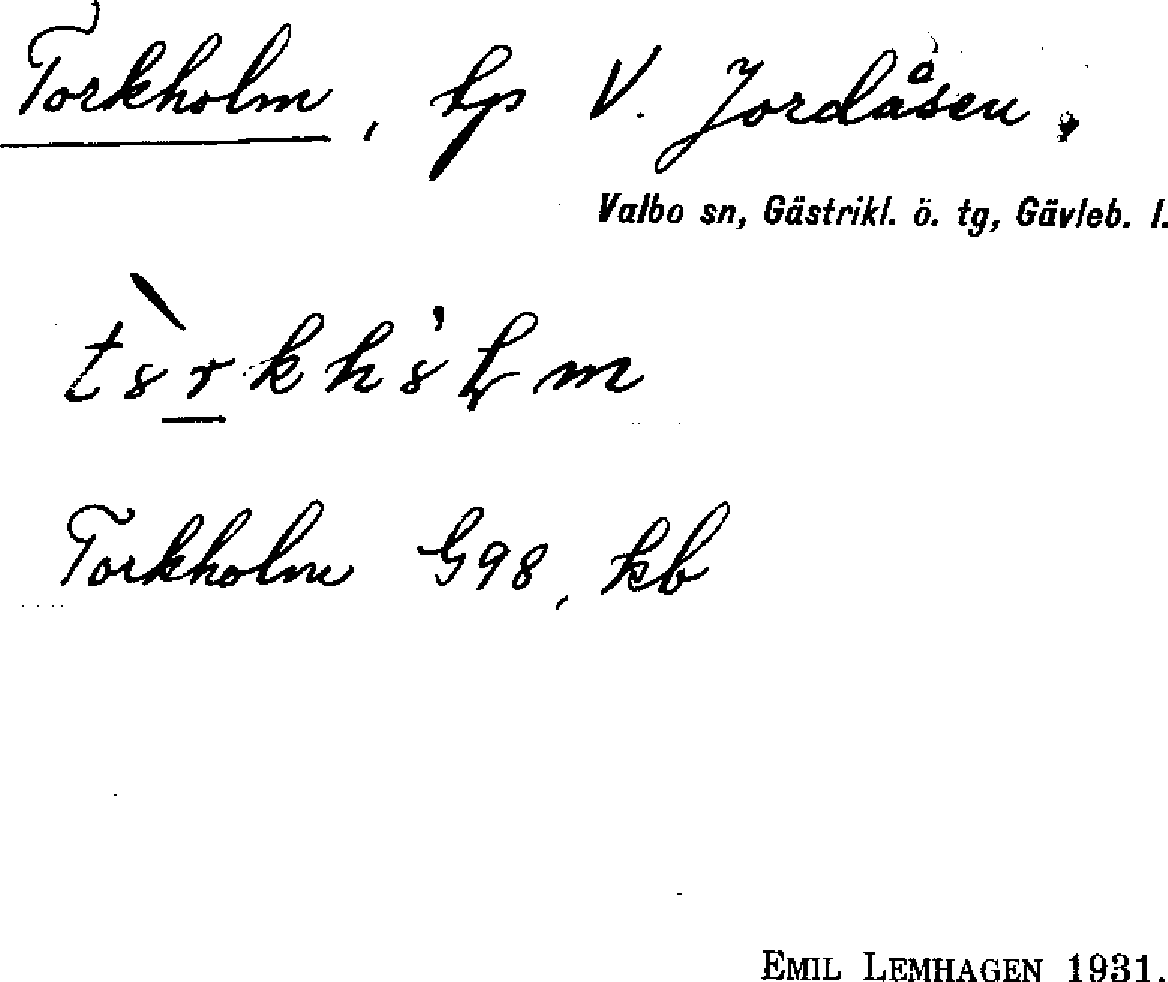 Torkholm, lp V. Jordåsen.
Valbo sn, Gästrikl. ö. tg, Gävleb. l.
tsrkhsłm
Torkholm G98, kb
EMIL LEMHAGEN 1931.